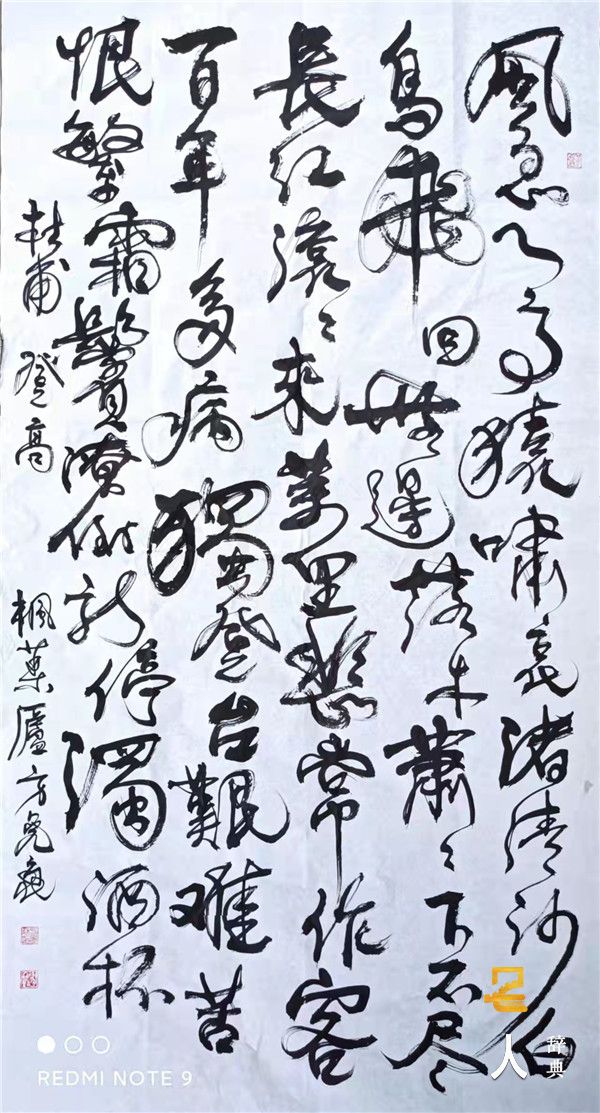 風急天高猿嘯哀渚清沙白
鳥飛回無邊落木蕭〻下不尽
長江滾〻來萬里悲常作客
百年多病獨登台艱难苦
恨繁霜鬢潦倒新停濁酒杯
杜甫 登高 楓葉廬方
REDMI NOTE 9
人 辞典